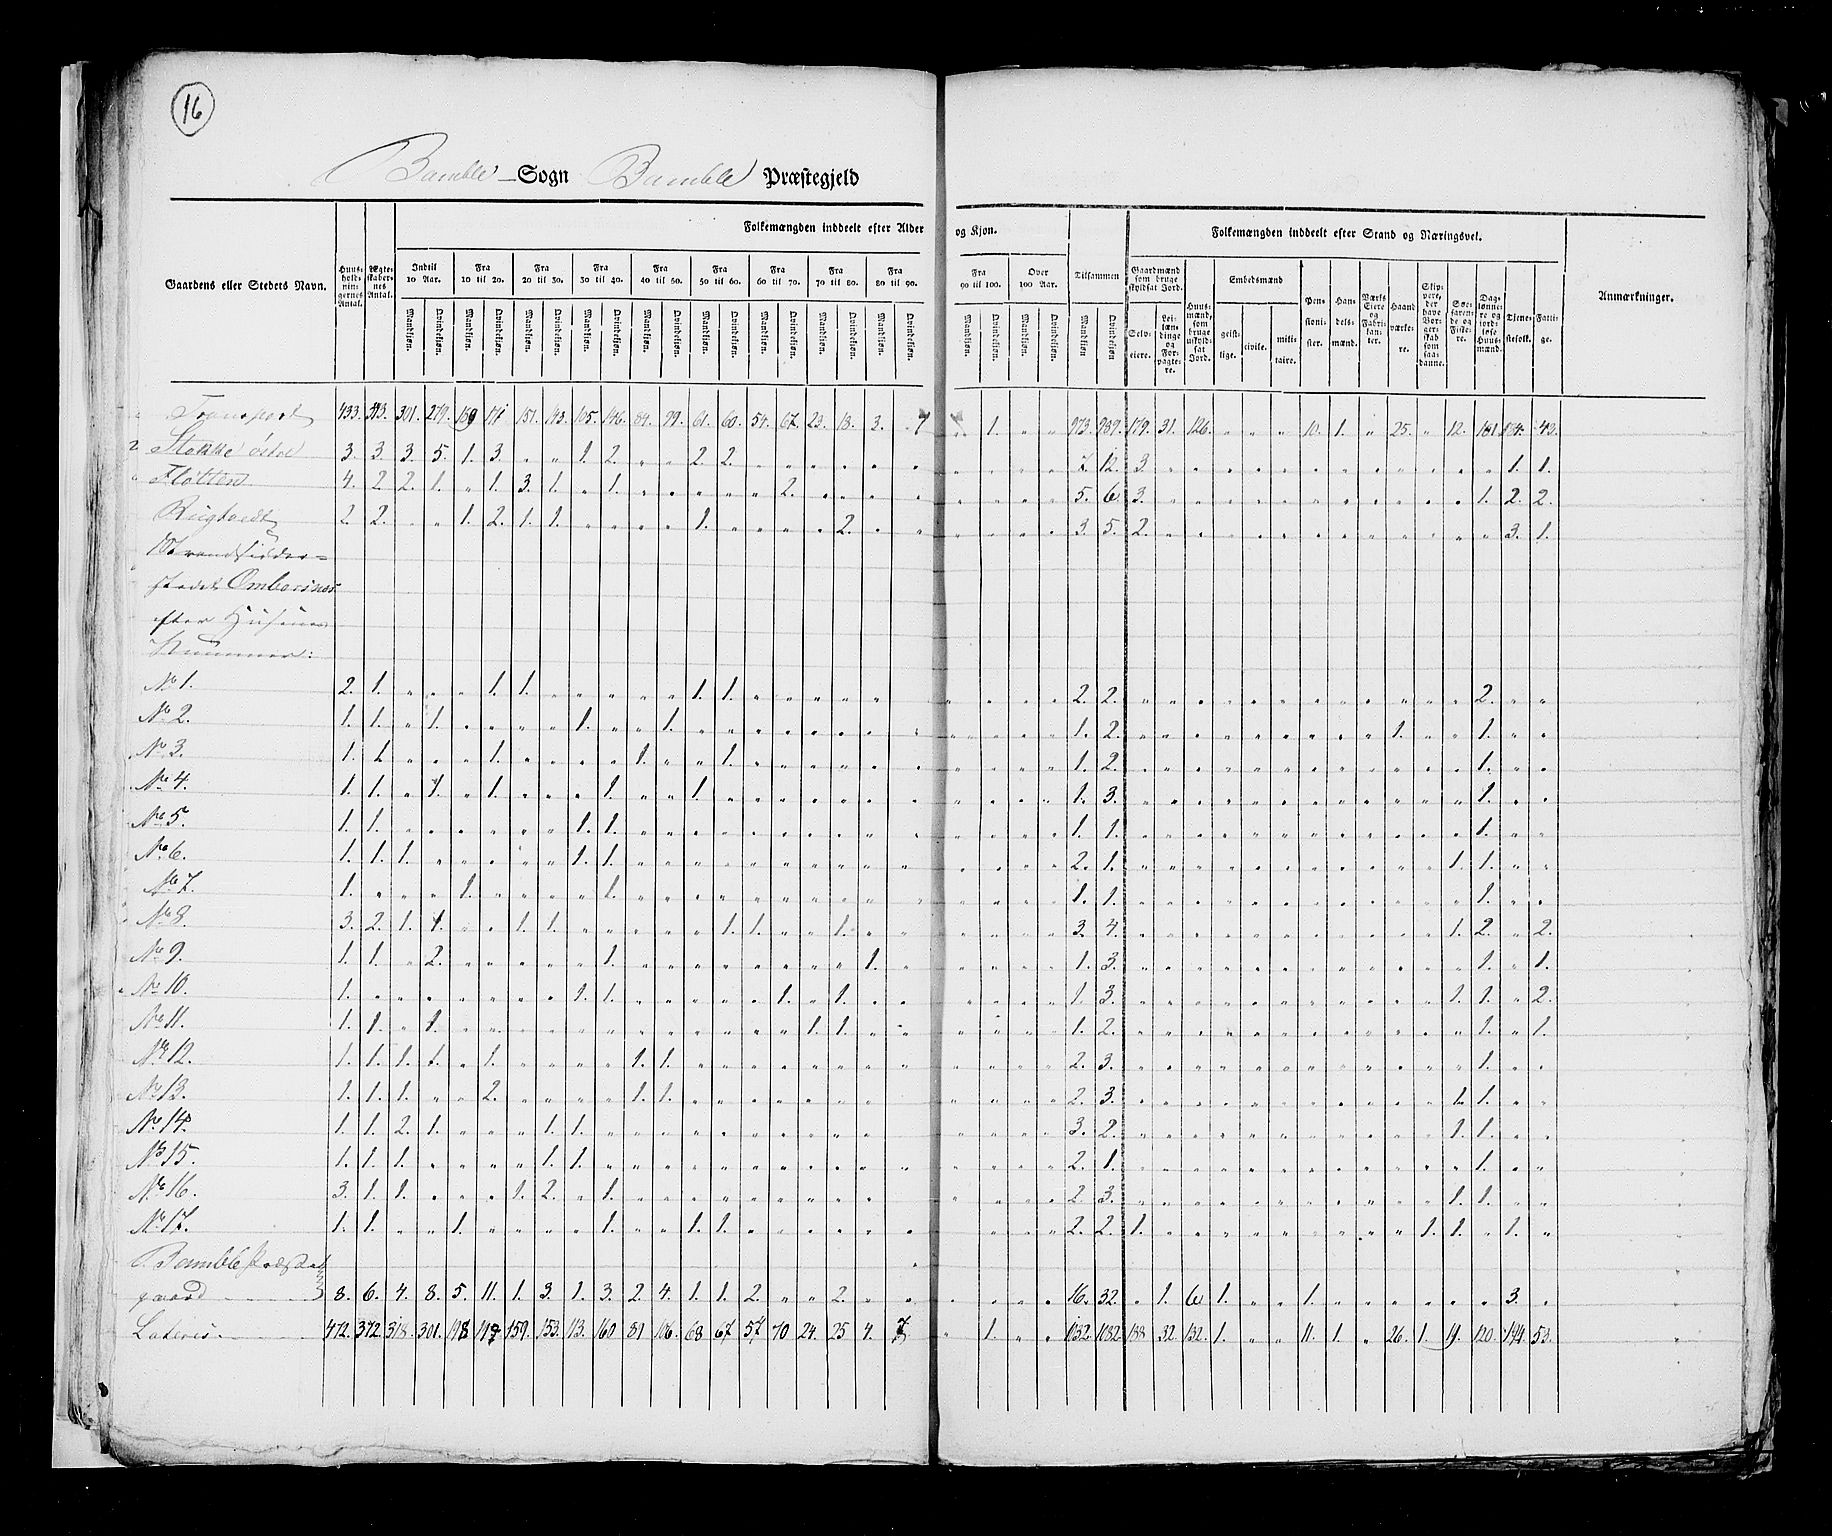 16
Bamble Sogn Bamble Præstegjeld
Folkemængden inddeelt efter Alder og Kjøn. Folkemængden inddeelt efter Stand og Næringsvei.
Gaardens eller Stedets Navn. Huusholdningernes Antal. Ægteskabernes Antal. Indtil 10 Aar. Fra 10 til 20. Fra 20 til 30. Fra 30 til 40. Fra 40 til 50. Fra 50 til 60. Fra 60 til 70. Fra 70 til 80. Fra 80 til 90. Fra 90 til 100. Over 100 Aar. Tilsammen Gaardmænd som bruge skyldsat Jord. Huusmænd, som bruge uskyldsat Jord. Embedsmænd Pensionister. Handelsmænd. Værks Eiere og Fabrikanter. Haandværkere. Skippere, der have Borgerskab som saadanne. Søefarende og Fiskere. Daglønnere og jordløse Huusmænd. Tjenestefolk. Fattige. Anmærkninger.
Mandkjøn. Qvindekjøn. Mandkjøn. Qvindekjøn. Mandkjøn. Qvindekjøn. Mandkjøn. Qvindekjøn. Mandkjøn. Qvindekjøn. Mandkjøn. Qvindekjøn. Mandkjøn. Qvindekjøn. Mandkjøn. Qvindekjøn. Mandkjøn. Qvindekjøn. Mandkjøn. Qvindekjøn. Mandkjøn. Qvindekjøn. Mandkjøn Qvindekjøn Selveiere. Leilændinge og Forpagtere. geistlige. civile. militaire.
Transport 433. 301. 279. 151. 143. 105. 146. 84. 99. 61. 60. 54. 67. 23. 18. 3. 7 1. 973. 989. 179. 31. 126. 10. 1. 25. 12. 43.
Stokke østre 3. 3. 3. 5. 1. 3. 1. 2. 2. 2. 7. 12. 3. 1. 1.
Flotten 4. 2. 2. 1. 1. 3. 1. 1. 2. 5. 6. 3. 1. 2. 2.
Rugtvedt 2. 2. 1. 2. 1. 1. 1. 2. 3. 5. 2. 3. 1.
Strandsidder=
stedet Ombersnes
efter Husenes
Nummer:
No 1. 2. 1. 1. 1. 1. 1. 2. 2. 2.
No 2. 1. 1. 1. 1. 1. 1. 2. 1. 1.
No 3. 1. 1. 1. 1. 1. 1. 2. 1.
No 4. 1. 1. 1. 1. 1. 1. 1. 3. 1.
No 5. 1. 1. 1. 1. 1. 1. 1.
No 6. 1. 1. 1. 1. 1. 2. 1. 1. 1.
No 7. 1. 1. 1. 1. 1. 1.
No 8. 3. 2. 1. 1. 1. 1. 1. 1. 1. 3. 4. 1. 2. 2.
No 9. 1. 1. 2. 1. 1. 1. 3. 1. 1.
No 10. 1. 1. 1. 1. 1. 1. 3. 1. 1. 2.
No 11. 1. 1. 1. 1. 1. 1. 2. 1. 1.
No 12. 1. 1. 1. 1. 1. 1. 1. 2. 3. 1.
No 13. 1. 1. 1. 2. 1. 1. 2. 3. 1. 1.
No 14. 1. 1. 2. 1. 1. 1. 3. 2. 1. 1.
No 15. 1. 1. 1. 1. 1. 2. 1. 1.
No 16. 3. 1. 1. 1. 2. 1. 2. 3. 1. 1.
No 17. 1. 1. 1. 1. 1. 1. 2. 2. 1. 1. 1. 1.
Bamble Præste
gaard 8. 6. 4. 8. 5. 11. 1. 3. 1. 3. 2. 4. 1. 1. 2. 2. 16. 32. 1. 6 1. 1. 3.
Lateris 472. 372. 318. 301. 159. 153. 113. 160 81 106. 68 67. 57 70 24. 25 4. 7 1. 1032. 1082. 188 32. 132. 1. 11. 1. 26. 1. 19. 120. 194. 53.